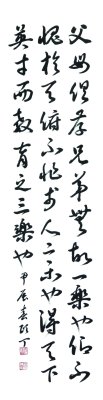 父母俱存兄弟無故一樂也仰不
愧於天俯不怍於人二樂也得天下
英才而教育之三樂也 甲辰春